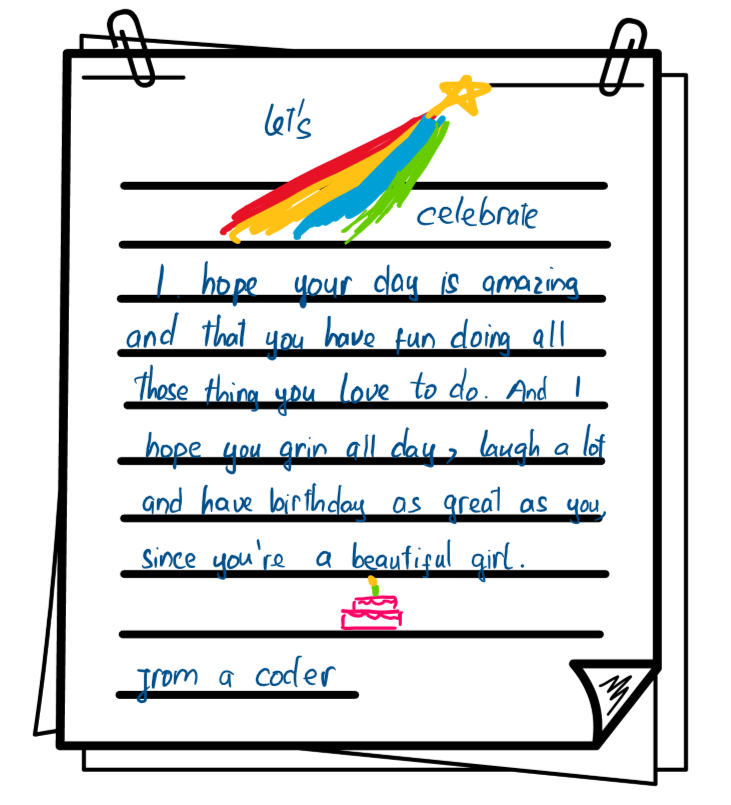 let's
celebrate
I hope your day is amazing
and that you have fun doing all
those thing you love to do. And I
hope you grin all day, laugh a lot
and have birthday as great as you,
since you're a beautiful girl.
from a coder